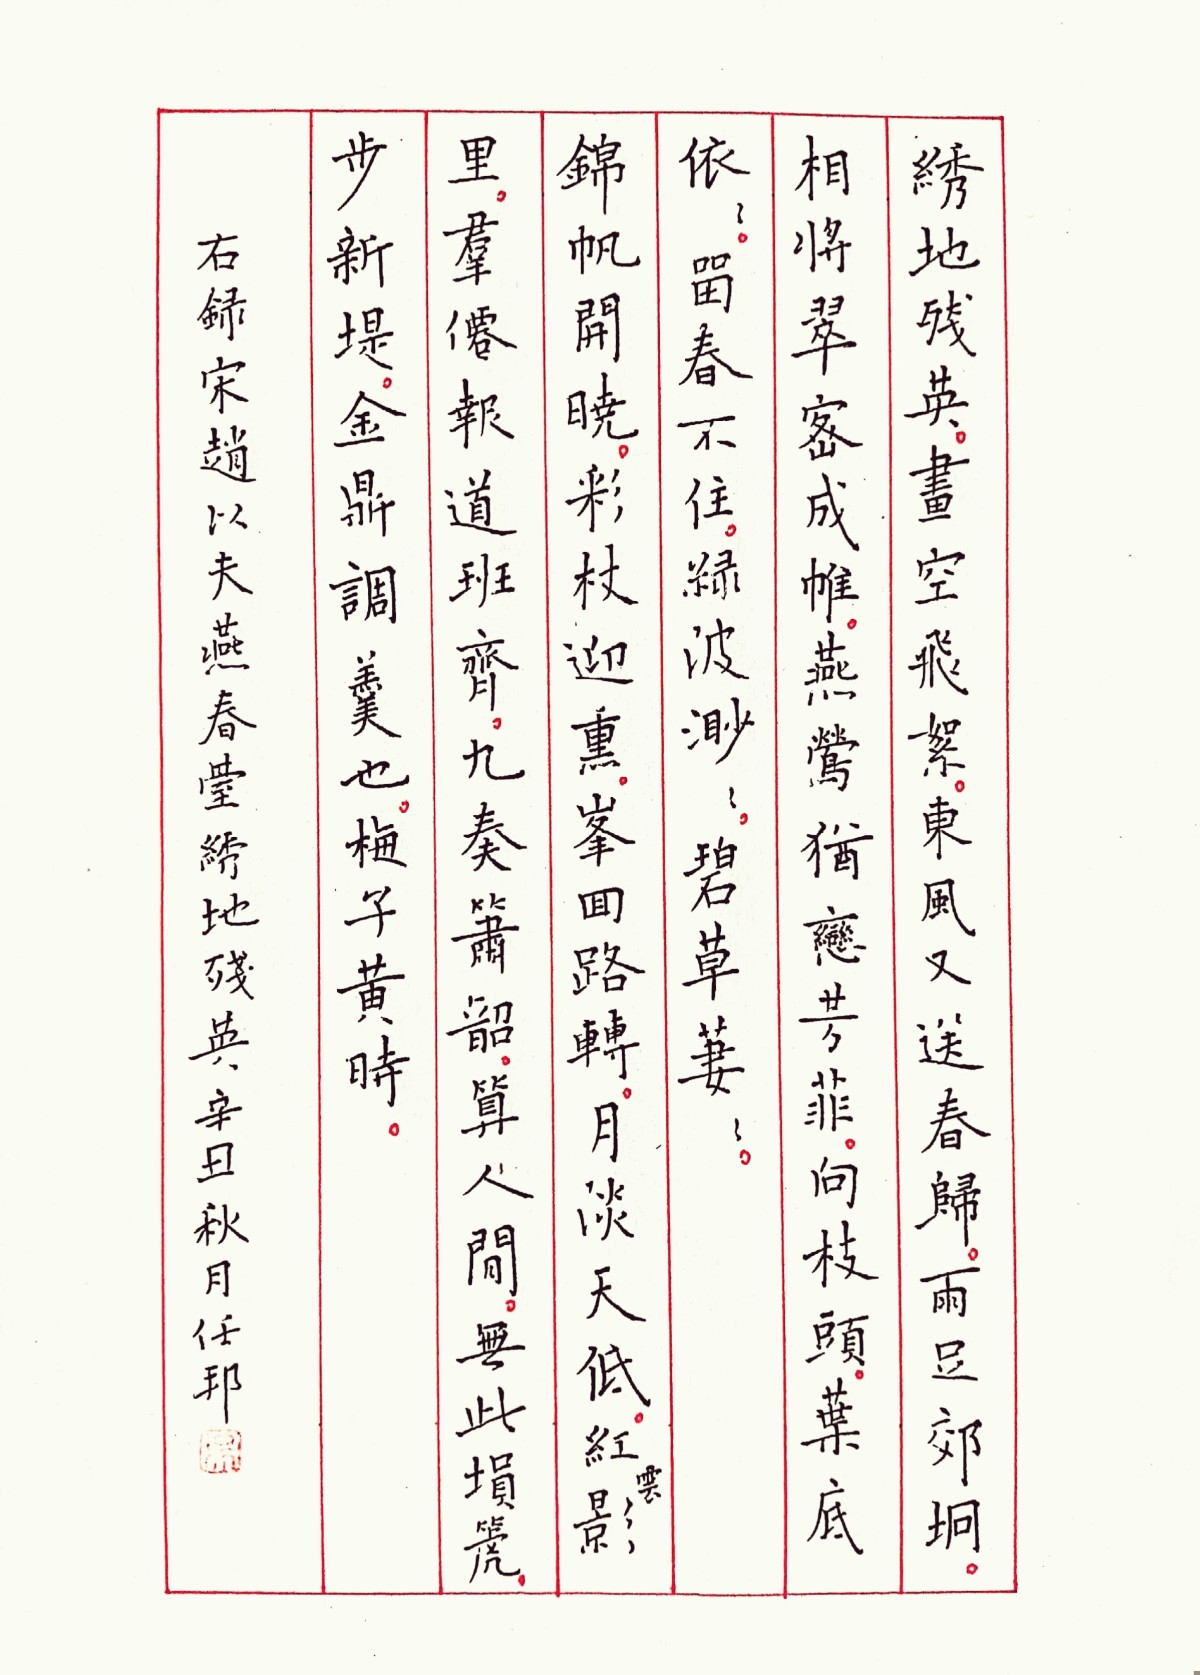 綉地残英。畫空飛絮。東風又送春歸。雨足郊坰。
相將翠宻成帷。燕鶯猶戀芳菲。向枝頭。葉底
依〻。畱春不住。緑波渺〻。碧草萋〻。
錦帆開曉。彩杖迎熏。峯囬路轉。月淡天低。紅雲影
里。羣僊報道班齊。九奏簫韶。算人間。無此塤篪。
步新堤。金鼎調羹也。梅子黄時。
右録宋趙以夫燕春臺綉地殘英辛丑秋月任邦